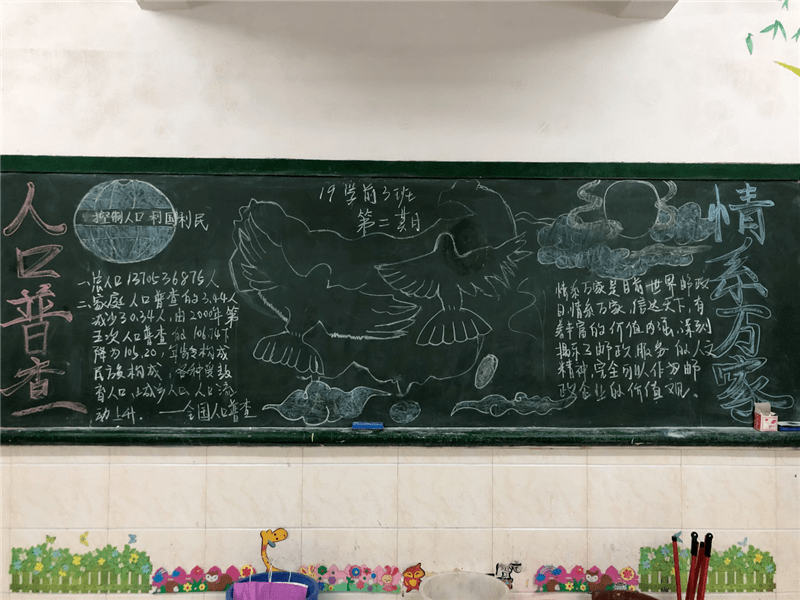 人口普查
控制人口 利国利民
19学前3班
第二期
一、总人口 1370536875人
二、家庭人口普查的3.44人
减少30.34人,由2000年第
五次人口普查的106.74下
降为105.20,年龄构成
民族构成,各种受教
育人口,城乡人口,人口流
动上升.
——全国人口普查
情系万家
情系万家是日着世界邮政
日情系万家,信达天下,有
着丰富的价值内涵,深刻
揭示了邮政服务的人文
精神,完全可以作为邮
政企业的价值观。